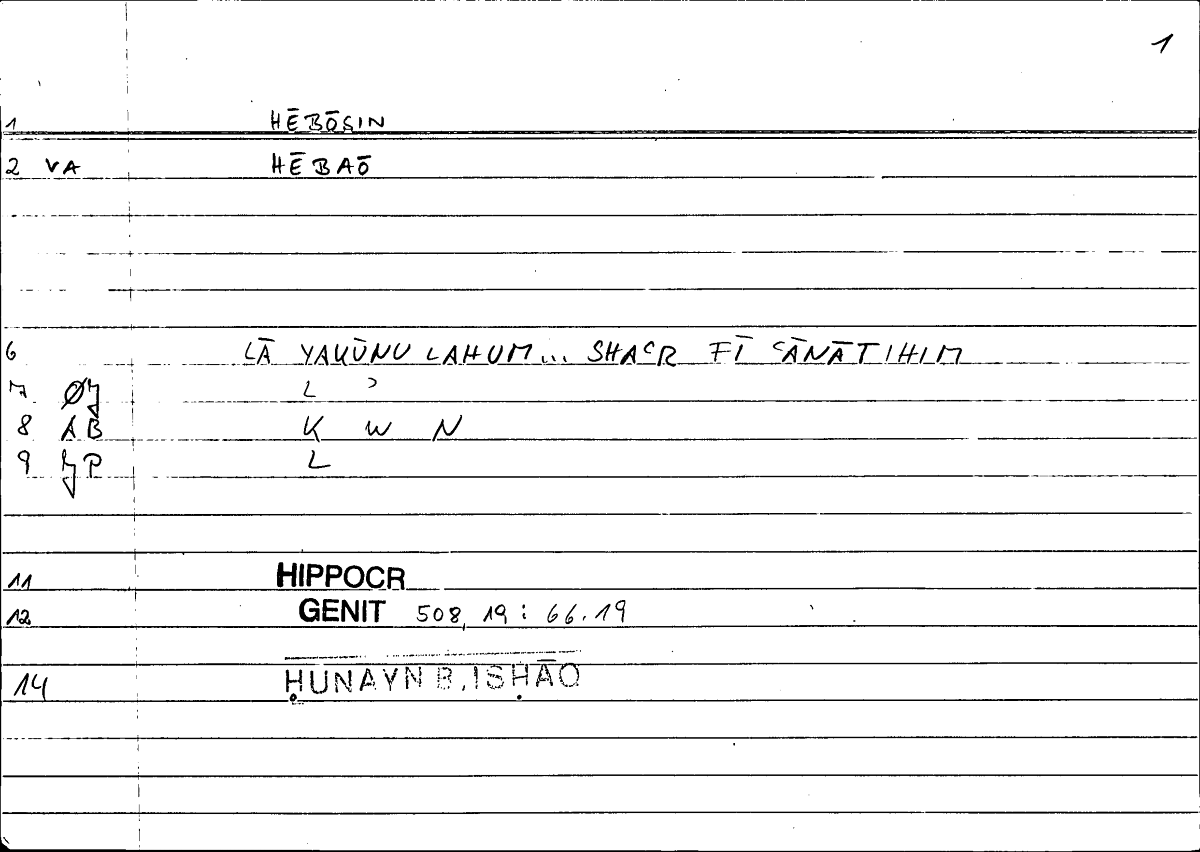 1
1 HĒBŌSIN
2 VA HĒBAŌ
6 LĀ YAKŪNU LAHUM... SHAᶜR FĪ ᶜĀNĀTIHIM
7 L ʾ
8 AB K W N
9 L
11 HIPPOCR
12 GENIT 508, 19 : 66.19
14 ḤUNAYN B. ISḤĀQ